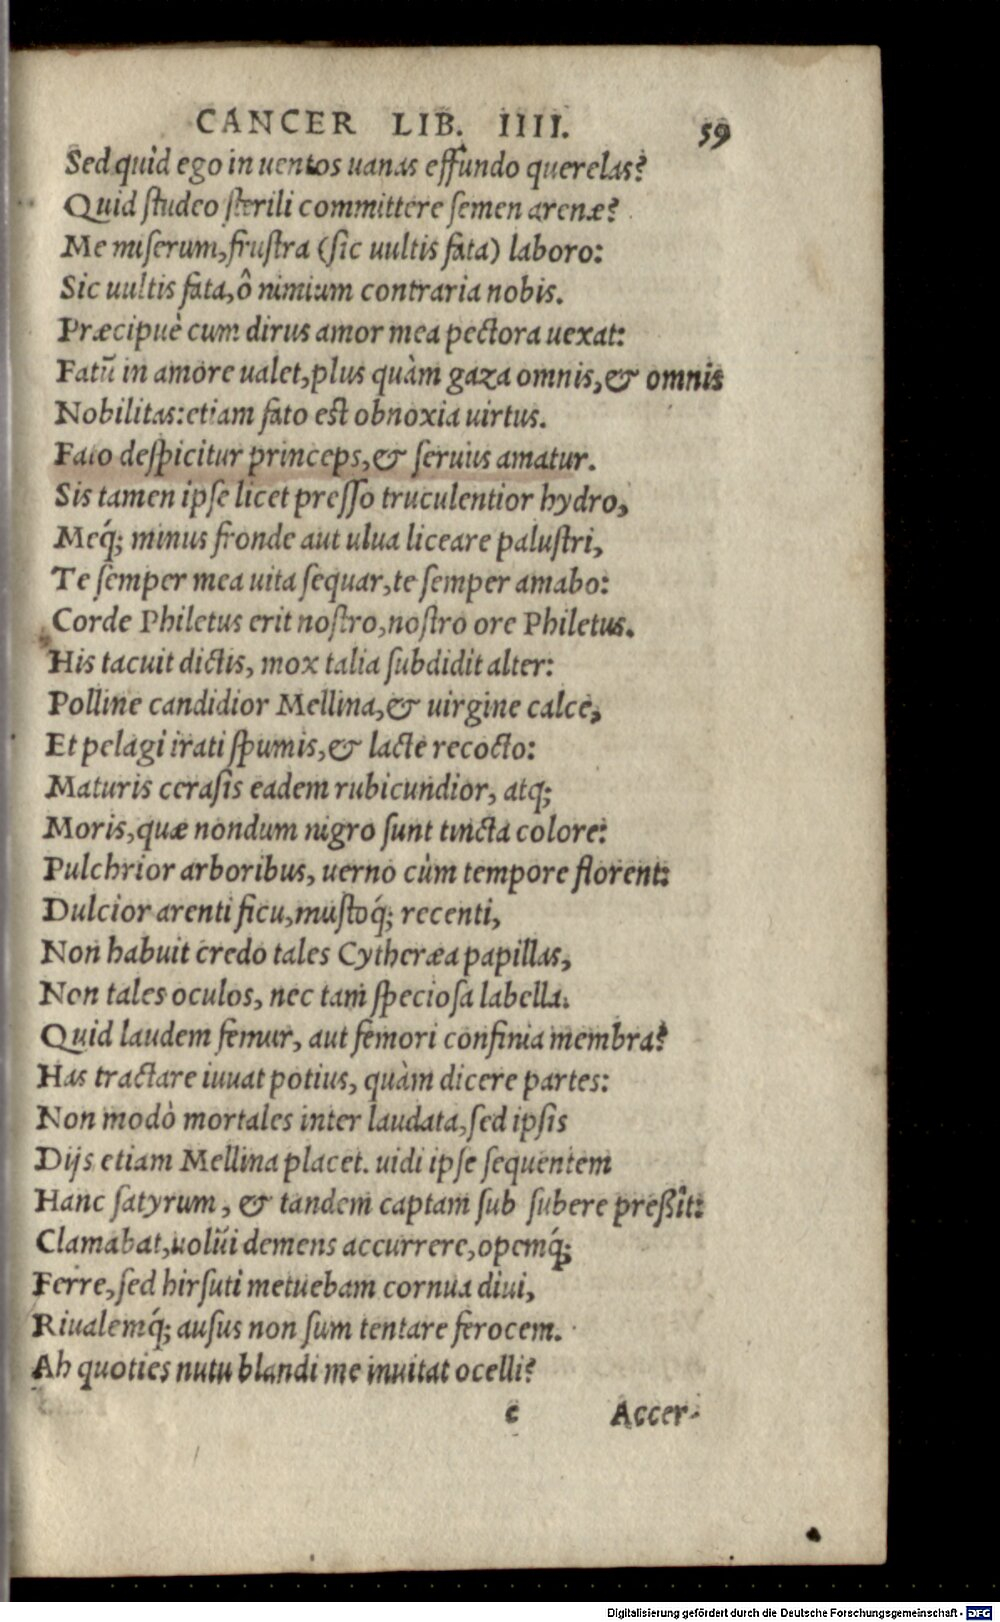 CANCER LIB. IIII. 59
Sed quid ego in uentos uanas effundo querelas?
Quid studeo sterili committere semen arenæ?
Me miserum, frustra (sic uultis fata) laboro:
Sic uultis fata, ô nimium contraria nobis.
Præcipuè cum dirus amor mea pectora uexat:
Fatū in amore ualet, plus quàm gaza omnis, & omnis
Nobilitas: etiam fato est obnoxia uirtus.
Fato despicitur princeps, & seruus amatur.
Sis tamen ipse licet presso truculentior hydro,
Meq́; minus fronde aut ulua liceare palustri,
Te semper mea uita sequar, te semper amabo:
Corde Philetus erit nostro, nostro ore Philetus.
His tacuit dictis, mox talia subdidit alter:
Polline candidior Mellina, & uirgine calce,
Et pelagi irati spumis, & lacte recocto:
Maturis cerasis eadem rubicundior, atq;
Moris, quæ nondum nigro sunt tincta colore:
Pulchrior arboribus, uerno cùm tempore florent:
Dulcior arenti ficu, mustoq́; recenti,
Non habuit credo tales Cytheræa papillas,
Non tales oculos, nec tam speciosa labella.
Quid laudem femur, aut femori confinia membra?
Has tractare iuuat potius, quàm dicere partes:
Non modò mortales inter laudata, sed ipsis
Dijs etiam Mellina placet. uidi ipse sequentem
Hanc satyrum, & tandem captam sub subere preßit:
Clamabat, uolui demens accurrere, opemq́;
Ferre, sed hirsuti metuebam cornua diui,
Riualemq́; ausus non sum tentare ferocem.
Ah quoties nutu blandi me inuitat ocelli?
c Accer-
Digitalisierung gefördert durch die Deutsche Forschungsgemeinschaft - DFG